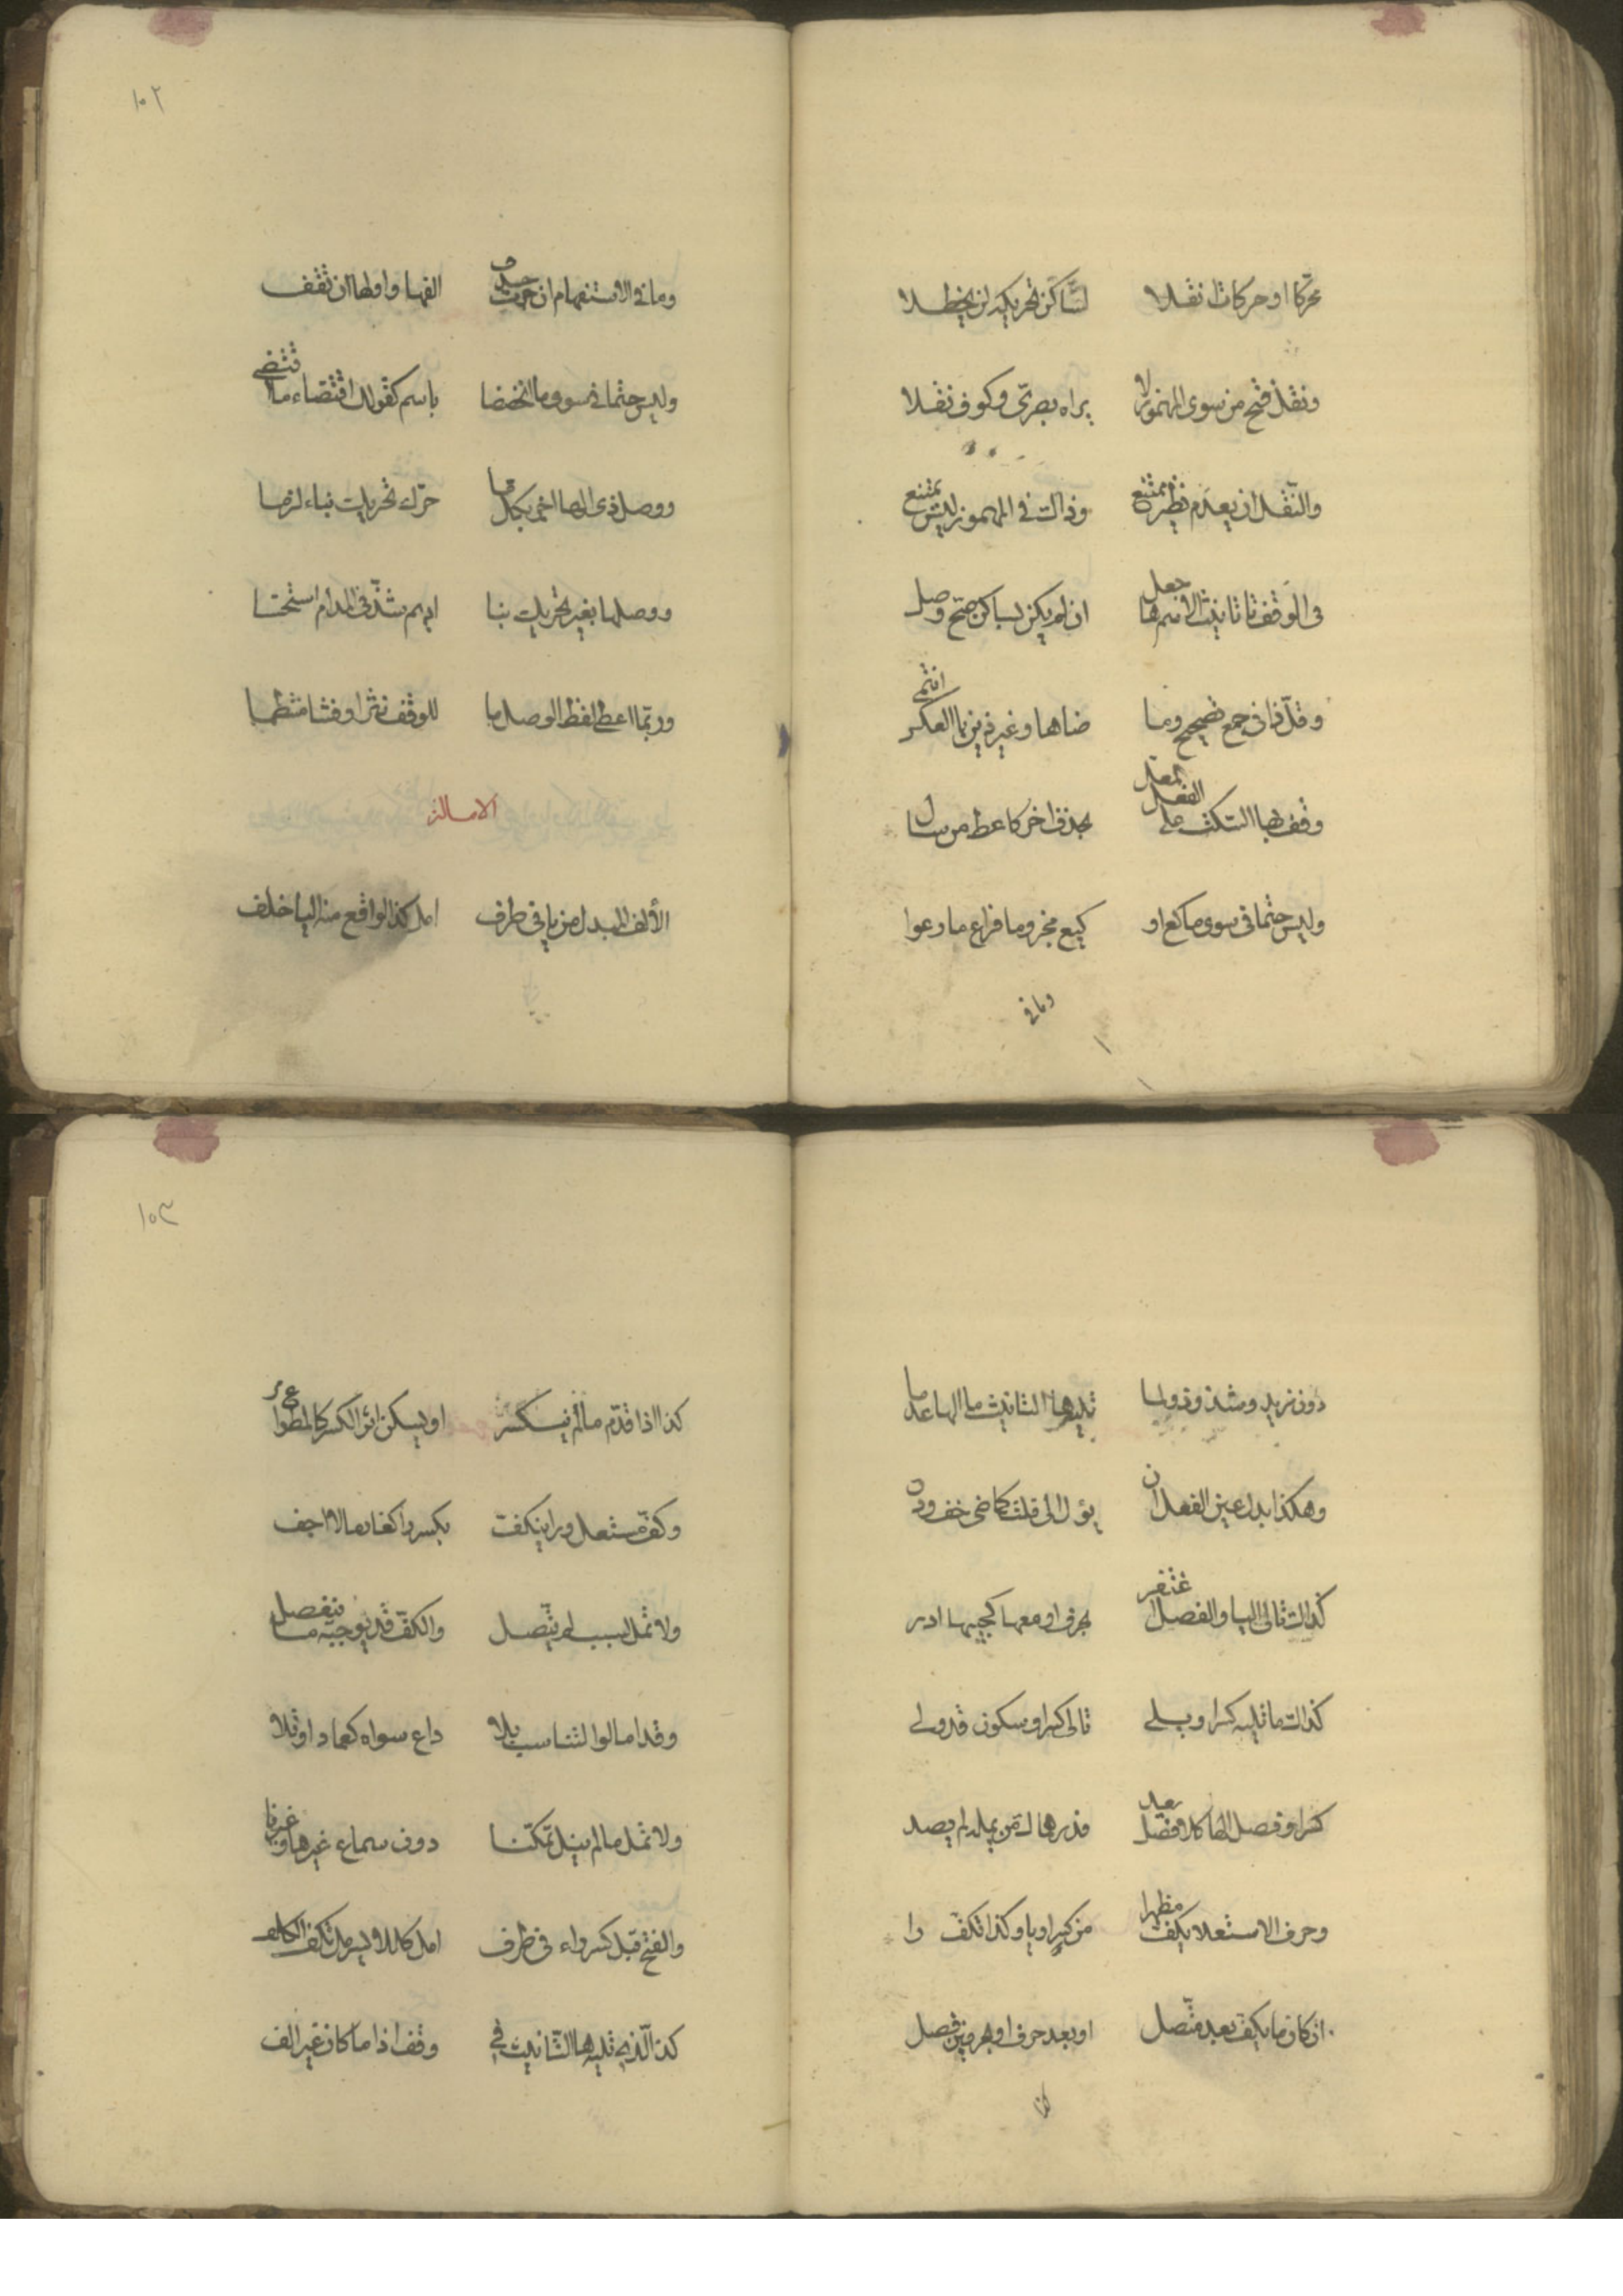 محركا او حركات انقلا لساكن تحريكه لن يحظلا
ونقل فتح من سوى المهموز لا يراه بصرى وكوف نقلا
والنقل ان يعدم نظير ممتنع وذاك فى المهموز ليس يمتنع
فى الوقف تا تانيث الاسم ها جعل ان لم يكن بساكن صح وصل
وقل ذا فى جمع تصحيح وما ضاها وغير ذين بالعكس انتمى
وقف بها السكت على الفعل المعل بحذف اخر كاعط من سال
وليس حتما فى سوى ما كع او كيع مجزوما فراع ما رعوا
وما فى
١٠٢
وما فى الاستفهام ان جرت حذف الفها واولها الها ان تقف
وليس حتما فى سوى ما انخفضا باسم كقولك اقتضاء م اقتضى
ووصل ذى الها اجز بكل ما حرك تحريك بناء لزما
ووصلها بغير تحريك بنا اديم شذ فى المدام استحسنا
وربما اعطى لفظ الوصل ما للوقف نثرا وفشا منتظما
الامالة
الألف المبدل من يا فى طرف امل كذا الواقع منه اليا خلف
دون مزيد وشذوذ ولما تليه ها التانيث ما الها عدما
وهكذا بدل عين الفعل ان يؤل الى فلت كماضى خف ودن
كذاك تالى اليا والفصل اغتفر بحرف او معها كجيبها ادر
كذاك ما يليه كسر او يلى تالى كسر او سكون قد ولى
كسرا وفصل الها كلا فصل يعد فدرهماك من يمله لم يصد
وحرف الاستعلا يكف مظهرا من كسر او يا وكذا تكف را
ان كان ما يكف بعد متصل او بعد حرف او بحرفين فصل
كذا
١٠٣
كذا اذا قدم ما لم ينكسر او يسكن اثر الكسر كالمطواع مر
وكف مستعل ورا ينكف بكسر را كغارما لا اجف
ولا تمل لسبب لم يتصل والكف قد يوجبه ما ينفصل
وقد امالوا لتناسب بلا داع سواه كعمادا وتلا
ولا تمل ما لم ينل تمكنا دون سماع غيرها وغيرنا
والفتح قبل كسر راء فى طرف امل كللايسر مل تكف الكلف
كذا الذى تليه ها التانيث فى وقف اذا ما كان غير الف